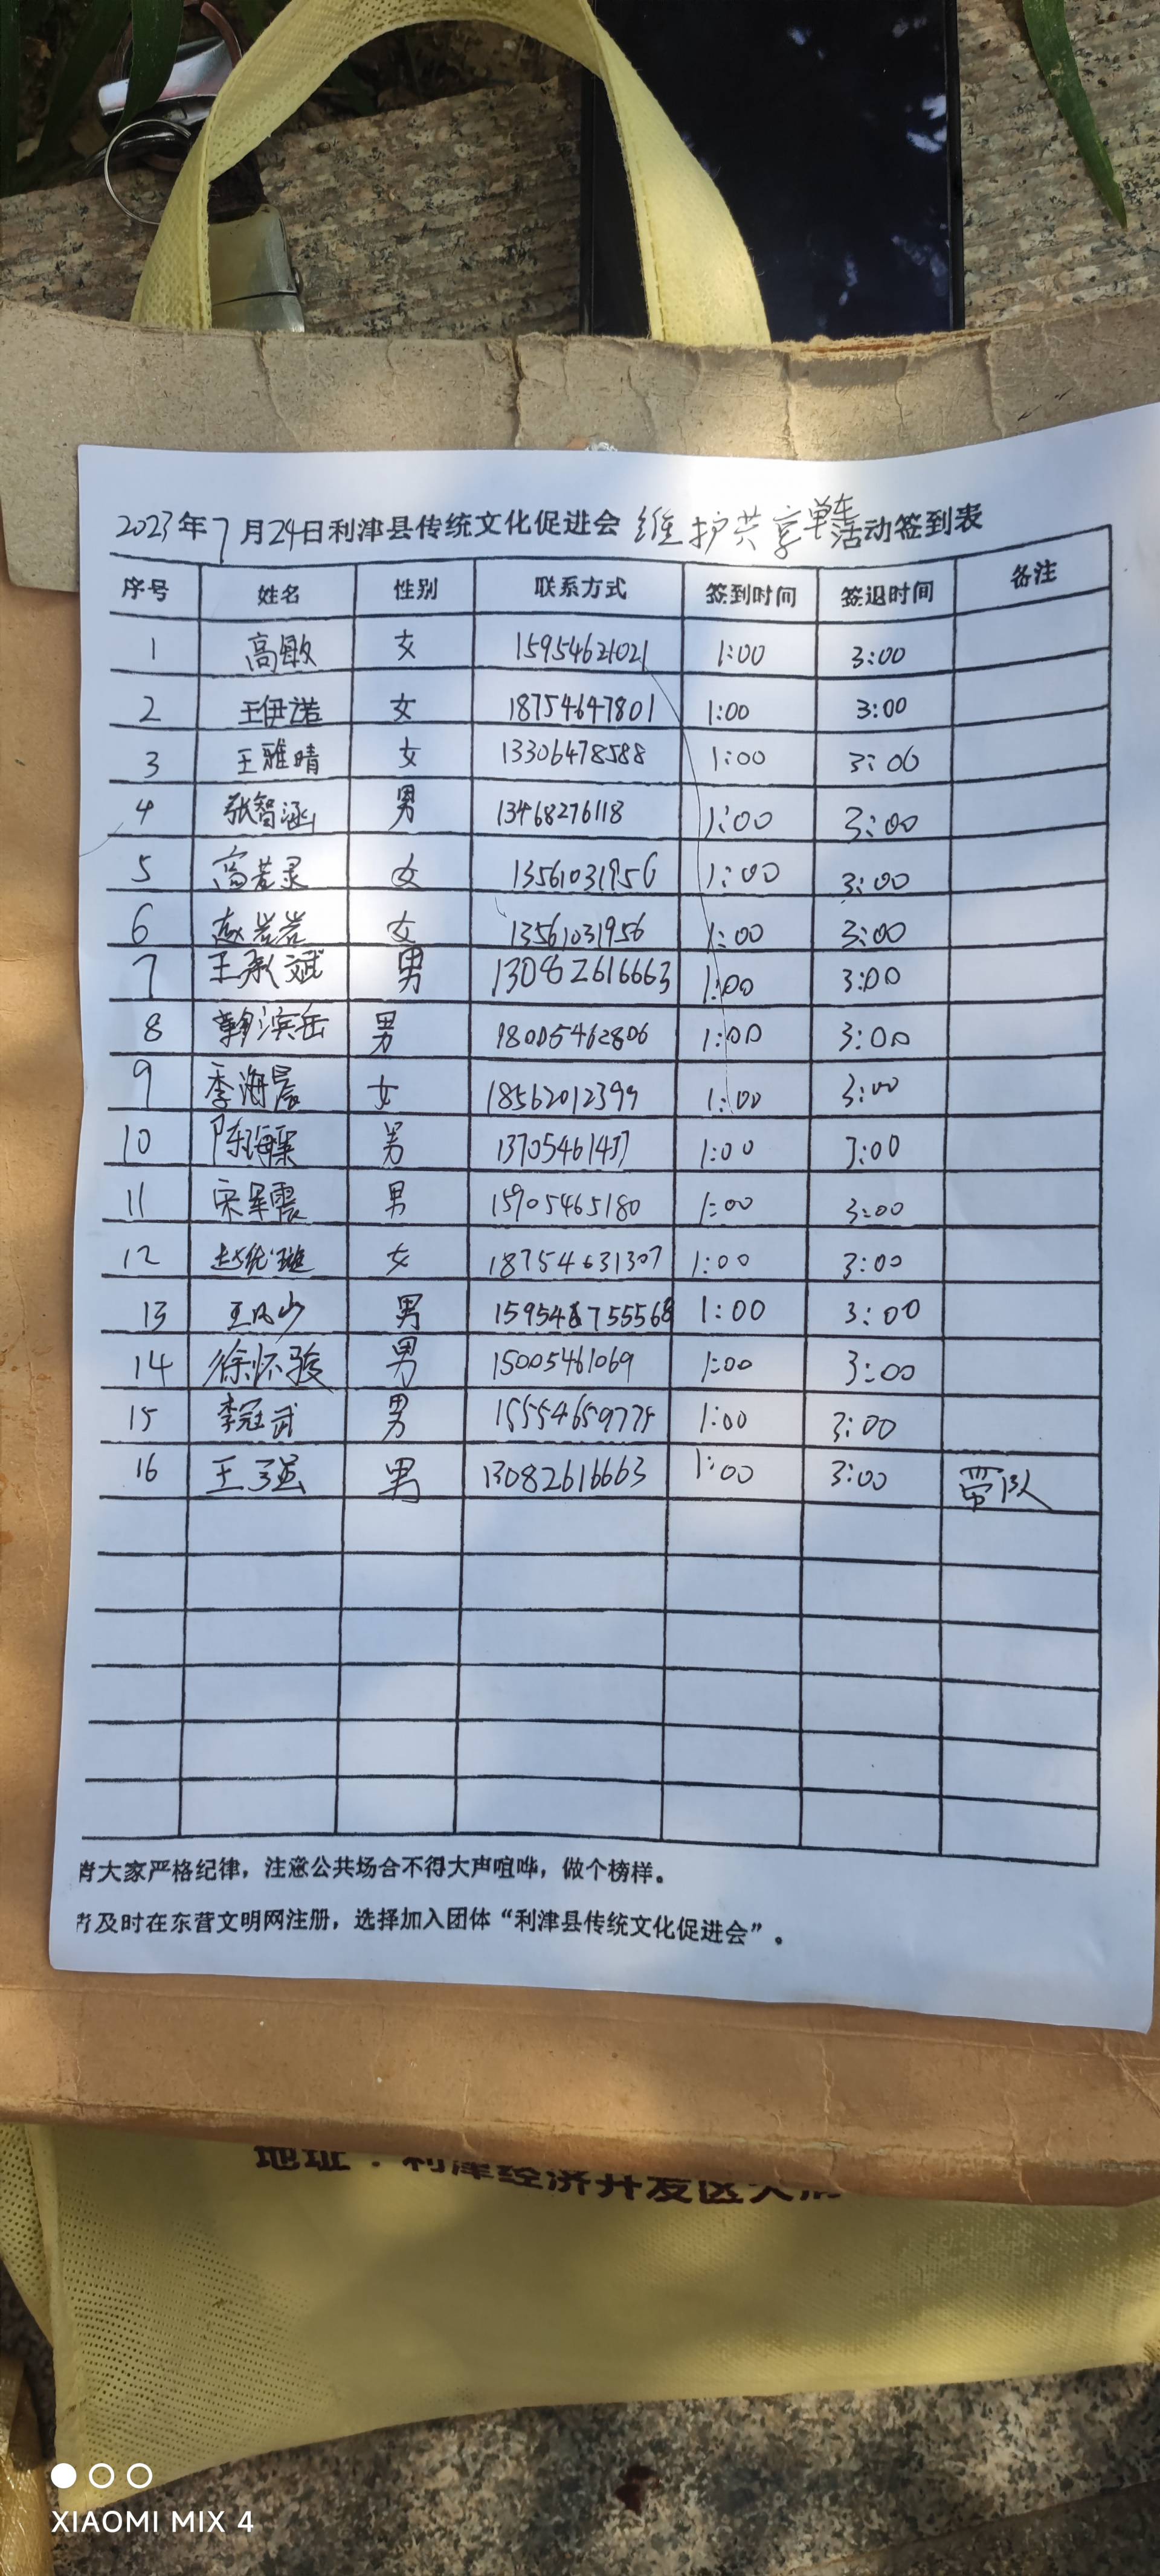 2023年7月24日利津县传统文化促进会 维护共享单车活动签到表
序号 姓名 性别 联系方式 签到时间 签退时间 备注
1 高敏 女 15954621021 1:00 3:00
2 王伊诺 女 18754647801 1:00 3:00
3 王雅晴 女 13306478588 1:00 3:00
4 张智涵 男 13468276118 1:00 3:00
5 高若灵 女 13561031956 1:00 3:00
6 赵岩岩 女 13561031956 1:00 3:00
7 王承斌 男 13082616663 1:00 3:00
8 韩滨岳 男 18005462806 1:00 3:00
9 季海晨 女 18562012399 1:00 3:00
10 男 1:00 3:00
11 男 15905465180 1:00 3:00
12 女 18754631307 1:00 3:00
13 王风少 男 1:00 3:00
14 徐怀骏 男 15005461069 1:00 3:00
15 李冠武 男 15554659775 1:00 3:00
16 王强 男 13082616663 1:00 3:00 带队
大家严格纪律，注意公共场合不得大声喧哗，做个榜样。
及时在东营文明网注册，选择加入团体“利津县传统文化促进会”。
地址：利津经济开发区大
XIAOMI MIX 4